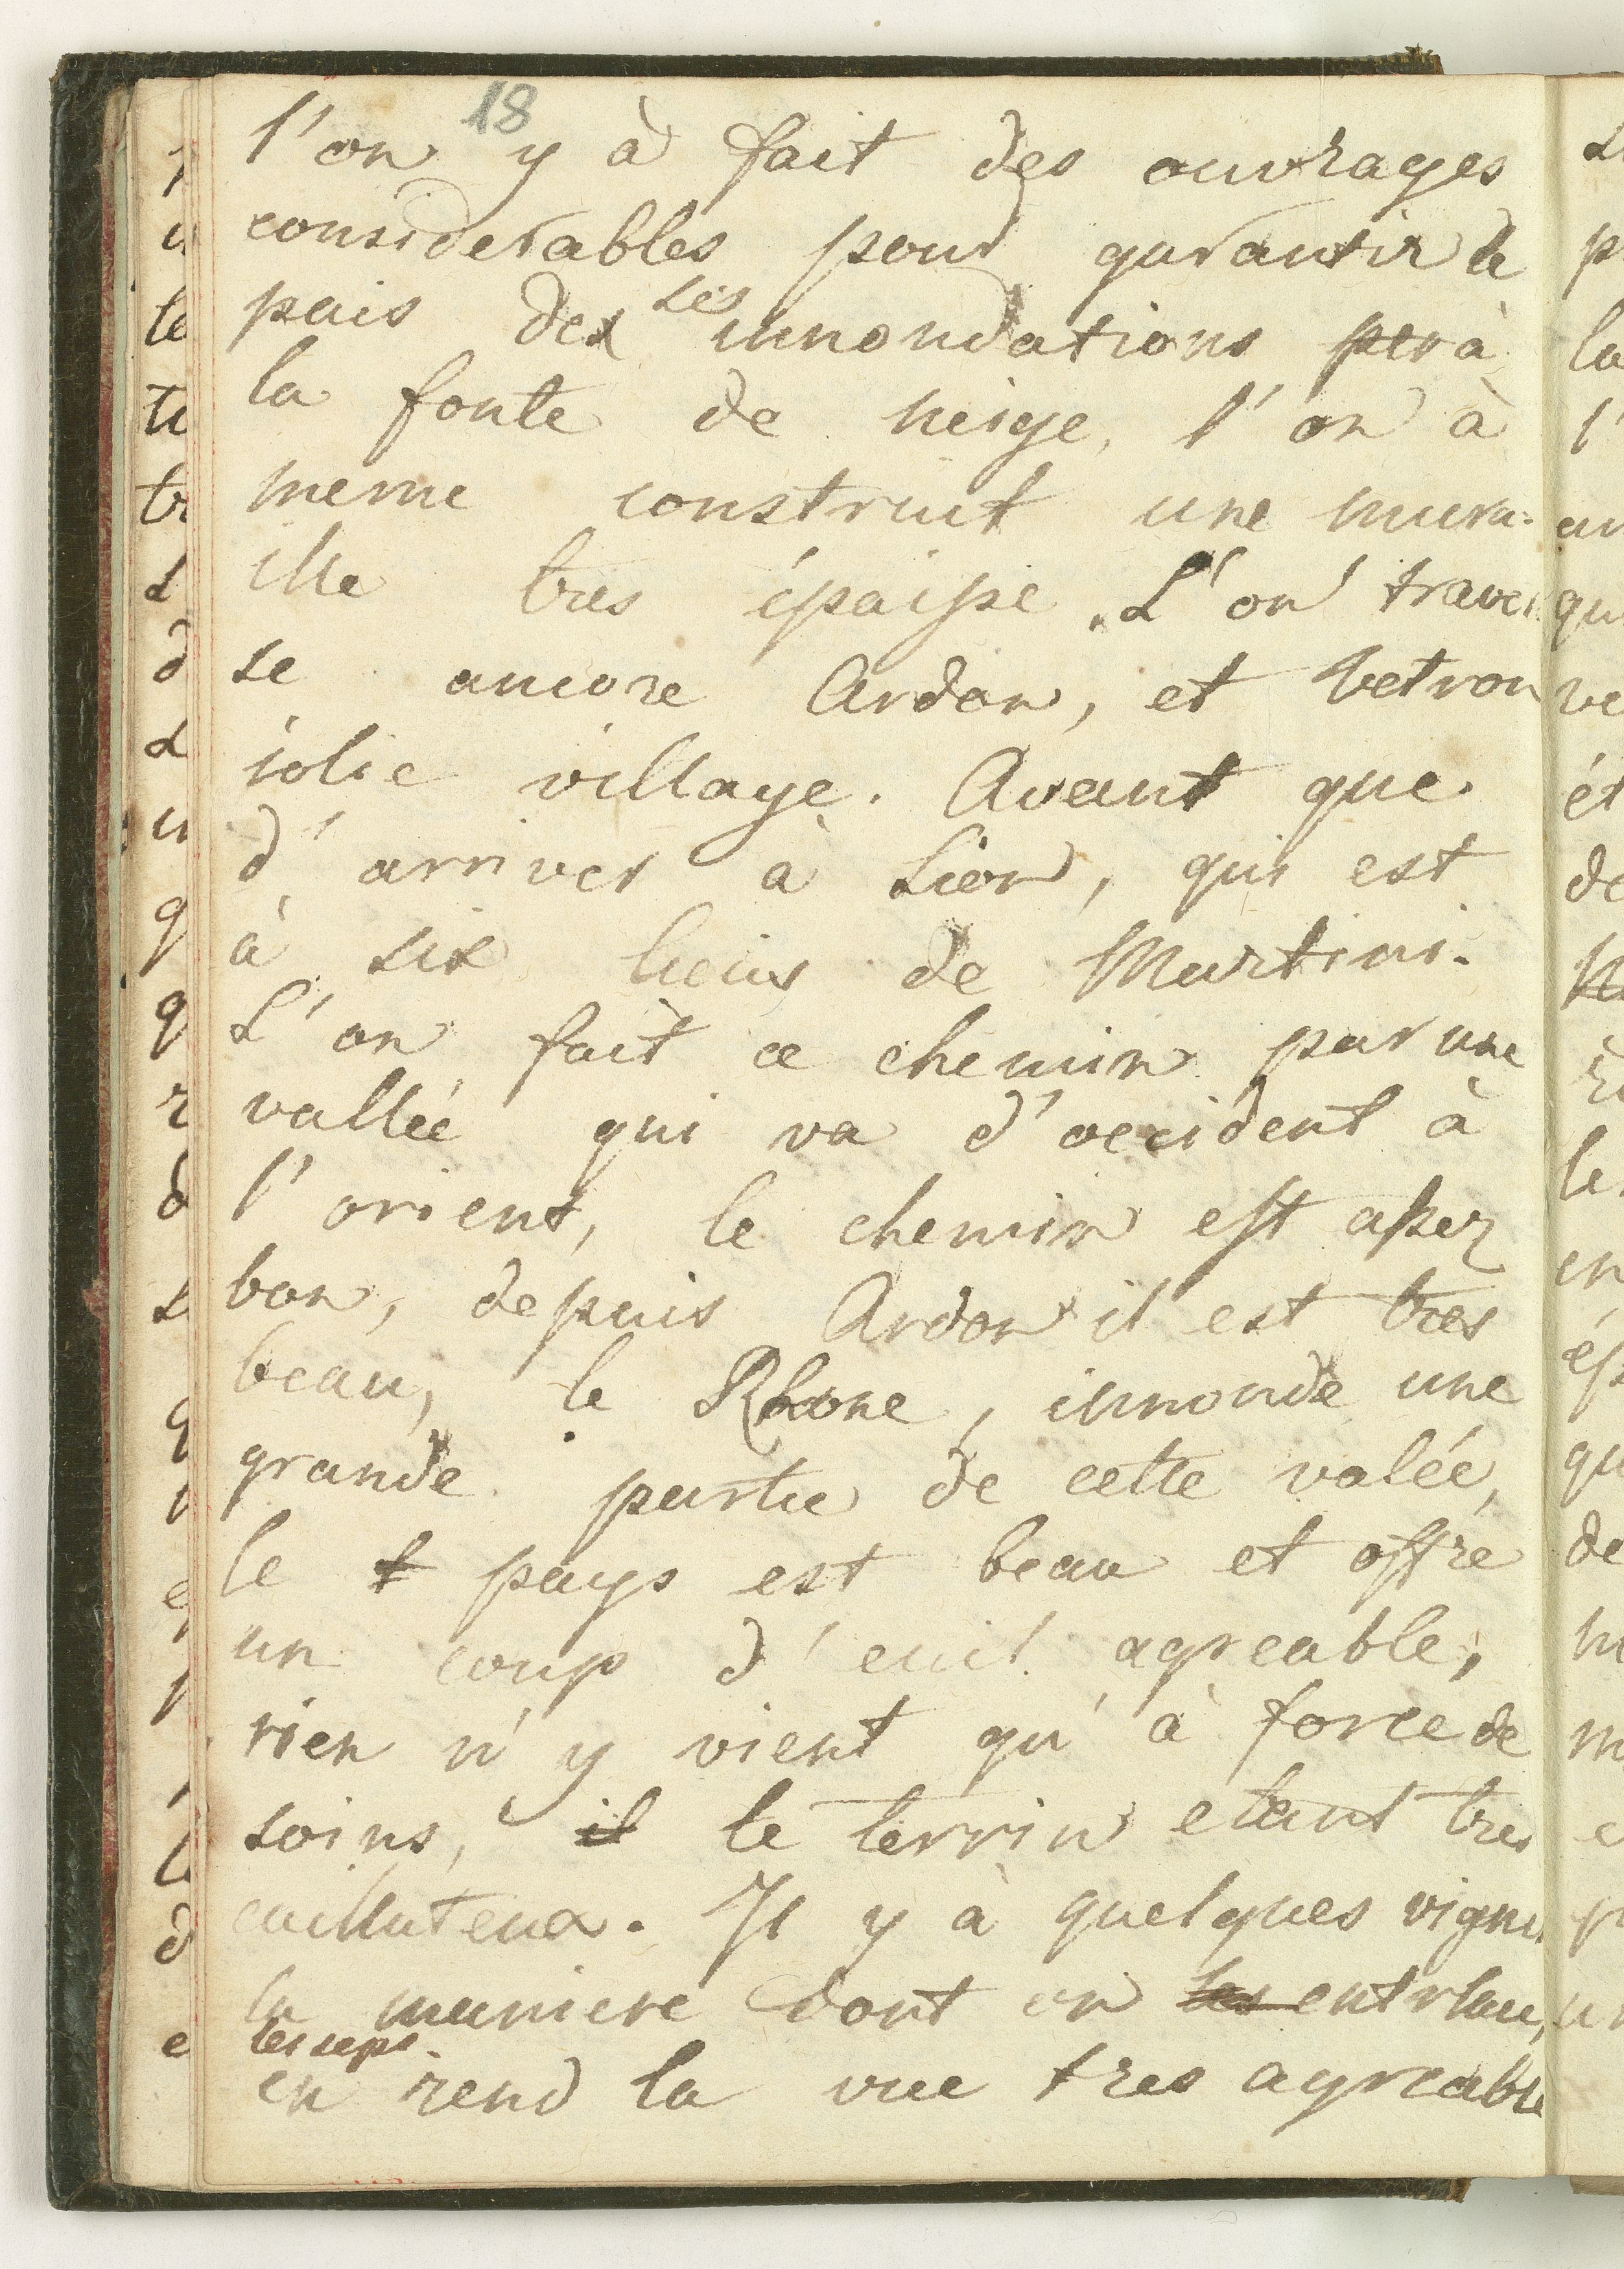 18
l'on y à fait des ouvrages
considerables pour garantir le
pais des ses innondations per à
la fonte de neige, l'on à
meme construit une mura-
ille tres épaisse. L'on traver
se ancore Ardon, et Vetron
jolie village. Avant que
d'arriver à Sion, qui est
à six lieus de Martini.
L'on fait ce chemin par une
vallée qui va d'occident à
l'orient, le chemin est assez
bon, depuis Ardon il est tres
beau, le Rhone, innonde une
grande partie de cette valée,
le t pays est beau et offre
un coup d'euil agreable,
rien n'y vient qu'à force de
soins, il le terrin etant tres
cailluteux. Il y à quelques vignes
la maniere dont on les entrlace
les seps.
en rend la vue tres agreable